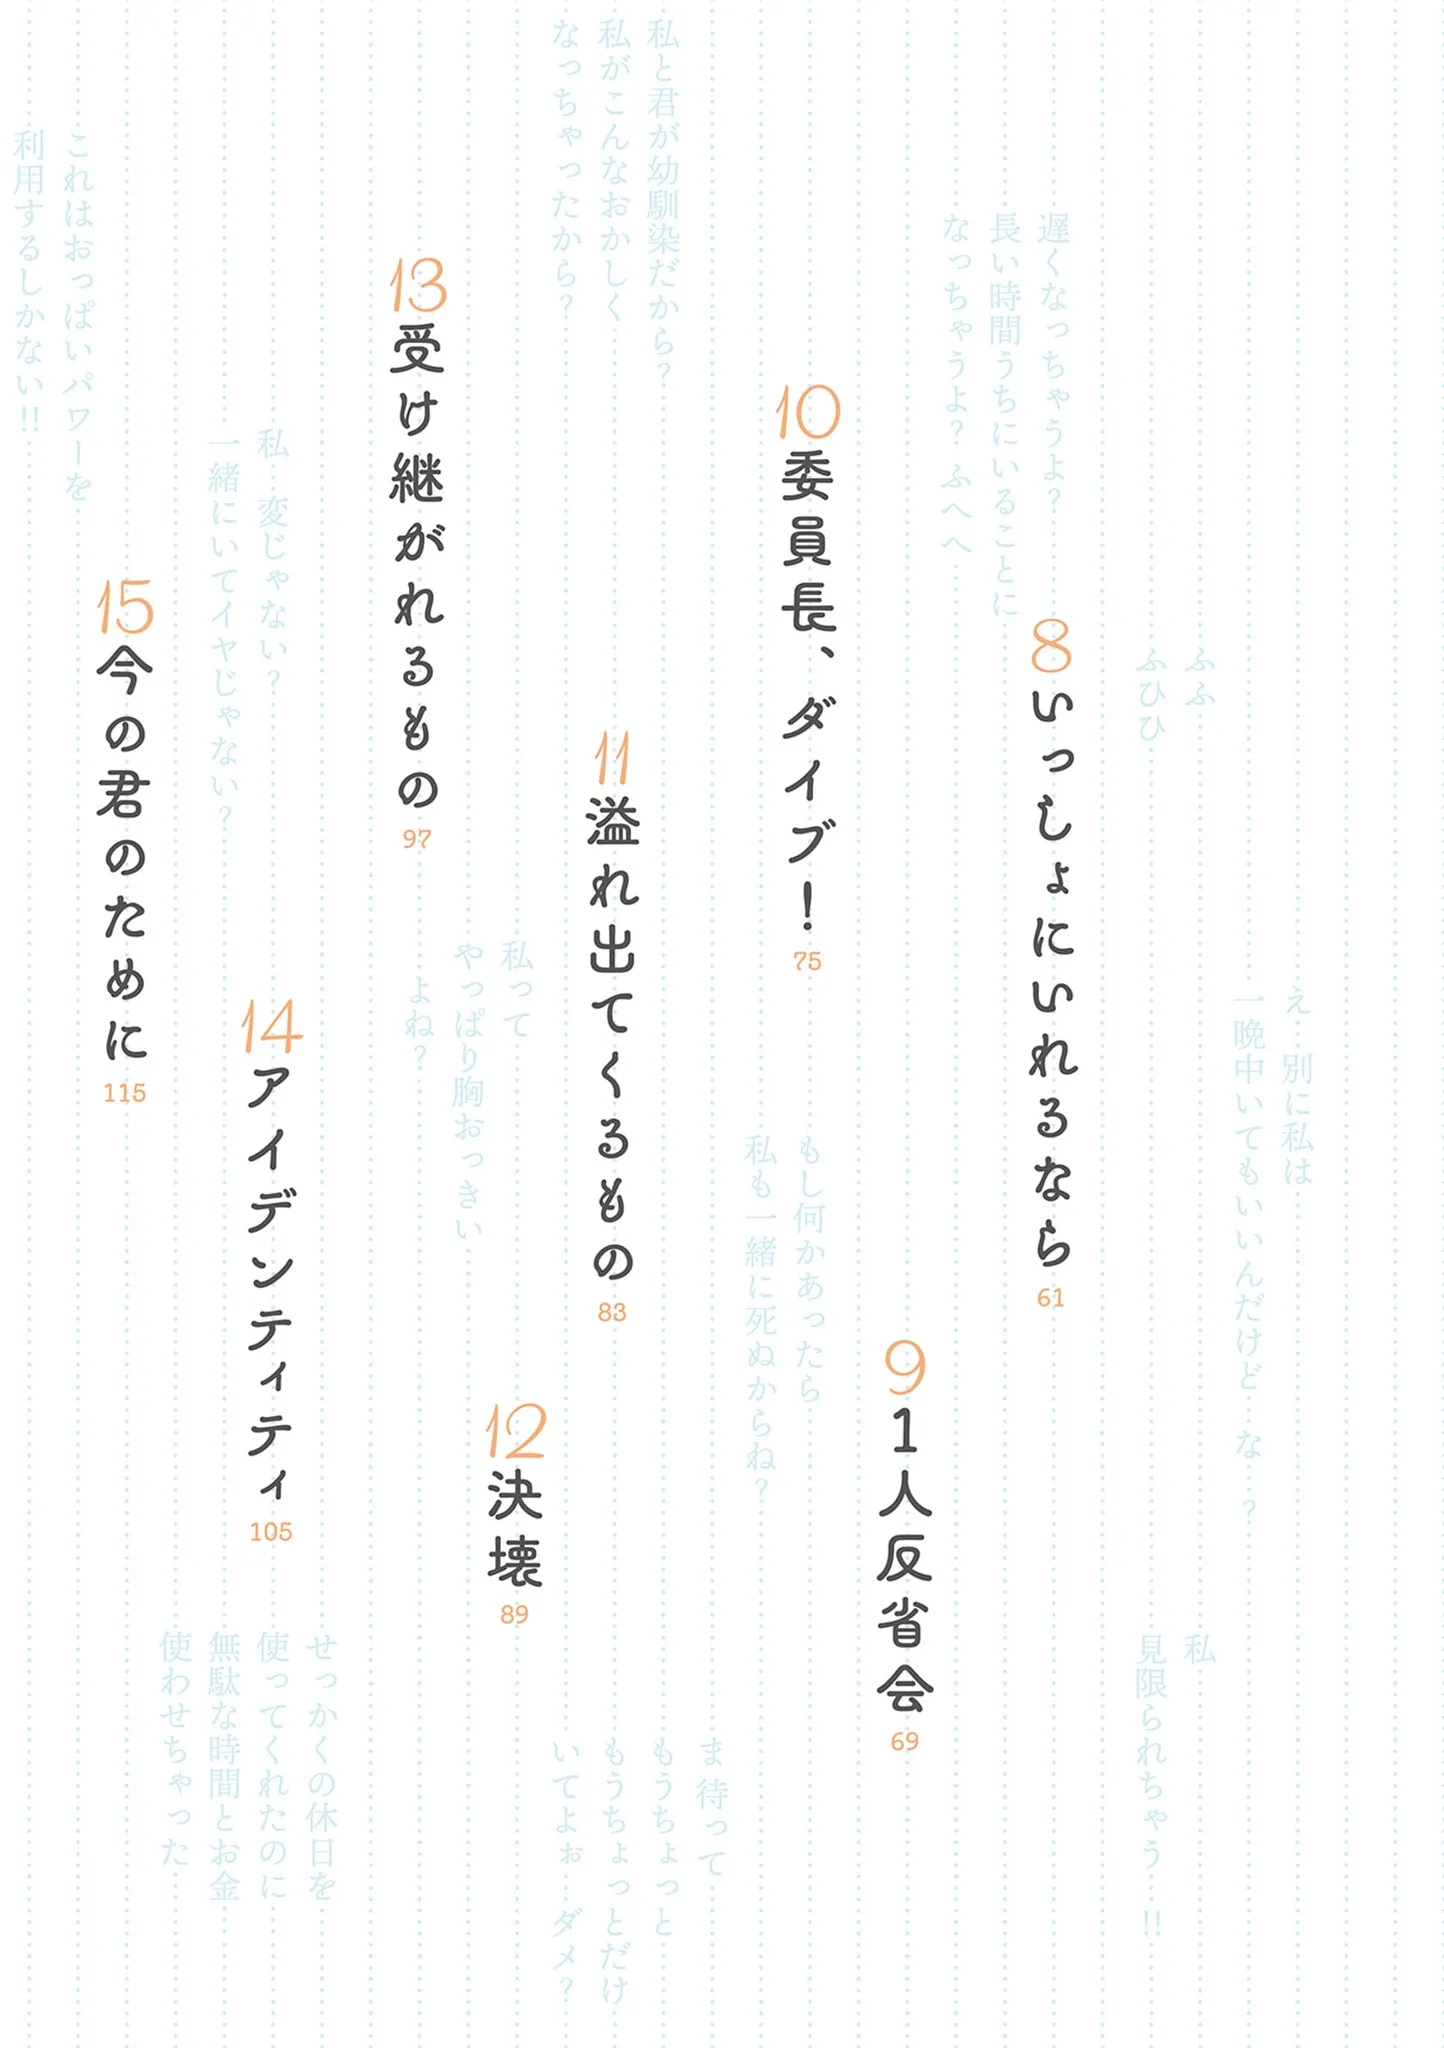 ふふ
ふひひ
え 別に私は
一晩中いてもいいんだけど な ?
私
見限られちゃう !!
遅くなっちゃうよ?
長い時間うちにいることに
なっちゃうよ? ふへへ
8
いっしょにいれるなら
61
9
1人反省会
69
10
委員長、ダイブ!
75
もし何かあったら
私も一緒に死ぬからね?
私と君が幼馴染だから?
私がこんなおかしく
なっちゃったから?
11
溢れ出てくるもの
83
ま 待って
もうちょっと
もうちょっとだけ
いてよぉ ダメ?
12
決壊
89
私って
やっぱり胸おっきい
よね?
13
受け継がれるもの
97
私 変じゃない?
一緒にいてイヤじゃない?
14
アイデンティティ
105
せっかくの休日を
使ってくれたのに
無駄な時間とお金
使わせちゃった
15
今の君のために
115
これはおっぱいパワーを
利用するしかない!!